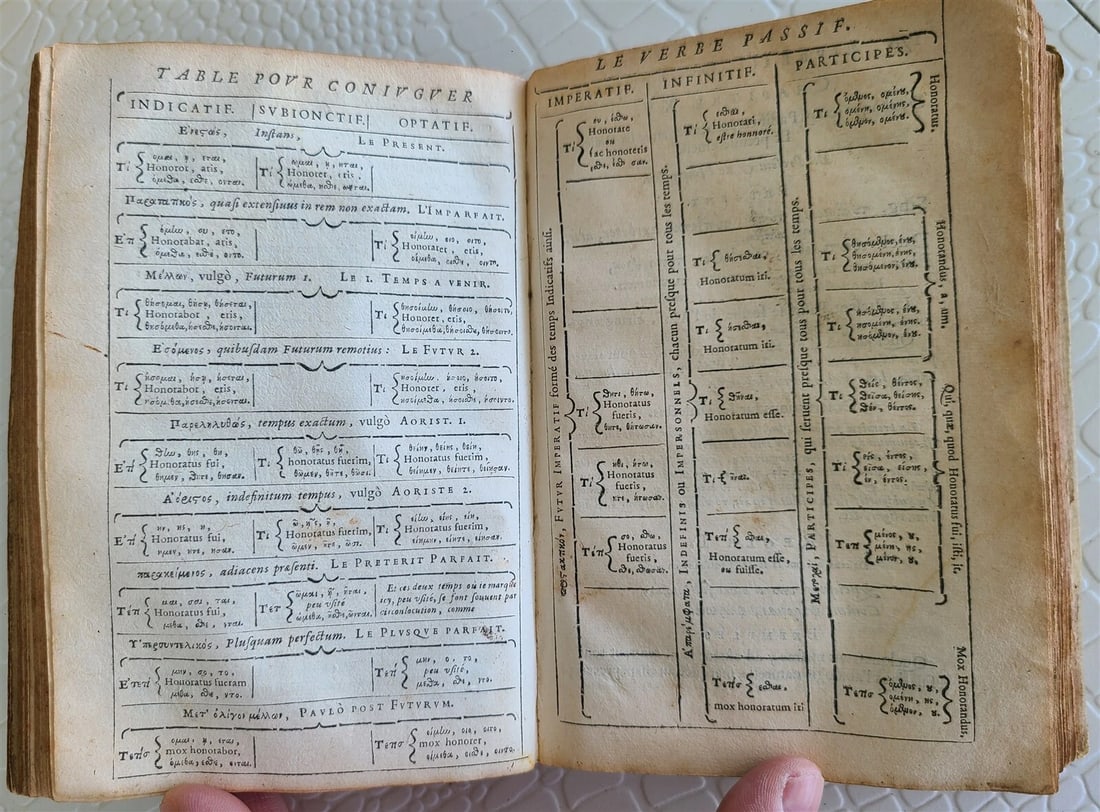 TABLE POVR CONIVGVER
INDICATIF. SVBIONCTIF. OPTATIF.
Ενεςὼς, Instans, LE PRESENT.
Τί ομαι, ῃ, εται, Τί ωμαι, ῃ, ηται,
Honoror, aris, Honorer, eris,
όμεθα, εσθε, ονται. ώμεθα, ησθε, ωνται.
Παρατατικὸς, quasi extensiuus in rem non exactam. L'IMPARFAIT.
Ε'π όμlω, ου, ετο, Τί οίμlω, οιο, οιτο,
Honorabar, aris, Honorarer, eris,
όμεθα, εσθε, οντο. οίμεθα, οισθε, οιντο.
Μέλλων, vulgò, Futurum 1. LE 1. TEMPS A VENIR.
Τί θήσομαι, θήσῃ, θήσεται, Τί θησοίμlω, θήσοιο, θήσοιτο,
Honorabor, eris, Honorer, eris,
θησόμεθα, ήσεσθε, θήσονται. θησοίμεθα, θήσοισθε, θήσοιντο.
Εσόμενος, quibusdam Futurum remotius: LE FVTVR 2.
Τί ήσομαι, ήσῃ, ήσεται, Τί ησοίμlω, ήσοιο, ήσοιτο,
Honorabor, eris, Honorer, eris,
ησόμεθα, ήσεσθε, ήσονται. ησοίμεθα, ήσοισθε, ήσοιντο.
Παρεληλυθὼς, tempus exactum, vulgò AORIST. 1.
Ε'τί θlω, θης, θη, Τί θῶ, θῇς, θῇ, Τί θείην, θείης, θείη,
Honoratus fui, honoratus fuerim, Honoratus fuerim,
θημεν, θητε, θησαν. θῶμεν, θῆτε, θῶσι. θείημεν, θείητε, θείησαν.
Α'όριστος, indefinitum tempus, vulgò AORISTE 2.
Ε'τί ην, ης, η, Τί ῶ, ῇς, ῇ, Τί είlω, είης, είη,
Honoratus fui, Honoratus fuerim, Honoratus fuerim,
ημεν, ητε, ησαν. ῶμεν, ῆτε, ῶσι. είημεν, είητε, είησαν.
παρακείμενος, adiacens præsenti. LE PRETERIT PARFAIT.
Τέτί μαι, σαι, ται, Τετ ῶμαι, ῇ, ῆται, Et ces deux temps où ie marque
Honoratus fui, peu vsité icy, peu vsité, se font souuent par
μεθα, σθε, νται. ώμεθα, ῆσθε, ῶνται. circonlocution, comme
Υ'περσυντελικὸς, Plusquam perfectum. LE PLVSQVE PARFAIT.
Ε'τετί μην, σο, το, Τετί μην, ο, το,
Honoratus fueram peu vsité,
μεθα, σθε, ντο. μεθα, σθε, ντο.
Μετ' ὀλίγον μέλλων, PAVLÒ POST FVTVRVM.
Τετίσ ομαι, ῃ, εται, Τετίσ οίμlω, οιο, οιτο,
mox honorabor, mox honorer,
όμεθα, εσθε, ονται. οίμεθα, οισθε, οιντο.
LE VERBE PASSIF.
IMPERATIF. INFINITIF. PARTICIPES.
Τί ου, έσθω,
Honorare
ou
fac honoreris
εσθε, έσθωσαν.
Τί εσθαι,
Honorari,
estre honnoré.
Τί όμενος, ομένου,
ομένη, ομένης,
όμενον, ομένου.
Honoratus,
Προστακτικὸν, FVTVR IMPERATIF formé des temps Indicatifs ainsi.
Τί θητι, θήτω,
Honoratus
fueris,
θητε, θήτωσαν.
Τί ηθι, ήτω,
Honoratus
fueris,
ητε, ήτωσαν.
Τέτί σο, σθω,
Honoratus
fueris,
σθε, σθωσαν.
Α'παρέμφατα, INDEFINIS ou IMPERSONNELS, chacun presque pour tous les temps.
Τί θήσεσθαι,
Honoratum iri.
Τί ήσεσθαι,
Honoratum iri.
Τί θῆναι,
Honoratum esse.
Τί ῆναι.
Τετί σθαι,
Honoratum esse,
ou fuisse.
Τετίσ εσθαι,
mox honoratum iri
Μετοχαὶ, PARTICIPES, qui seruent presque tous pour tous les temps.
Τί θησόμενος, ένου,
θησομένη, ένης,
θησόμενον, ένου.
Τί ησόμενος, ένου,
ησομένη, ένης,
ησόμενον, ένου.
Honorandus, a, um,
Τί θεὶς, θέντος,
θεῖσα, θείσης,
θὲν, θέντος.
Τί εὶς, έντος,
εῖσα, είσης,
ὲν, έντος.
Τετί μένος, ου,
μένη, ης,
μένον, ου.
Qui, quæ, quod Honoratus fui, isti, it.
Τετίσ όμενος, ου,
ομένη, ης,
όμενον, ου.
Mox Honorandus,